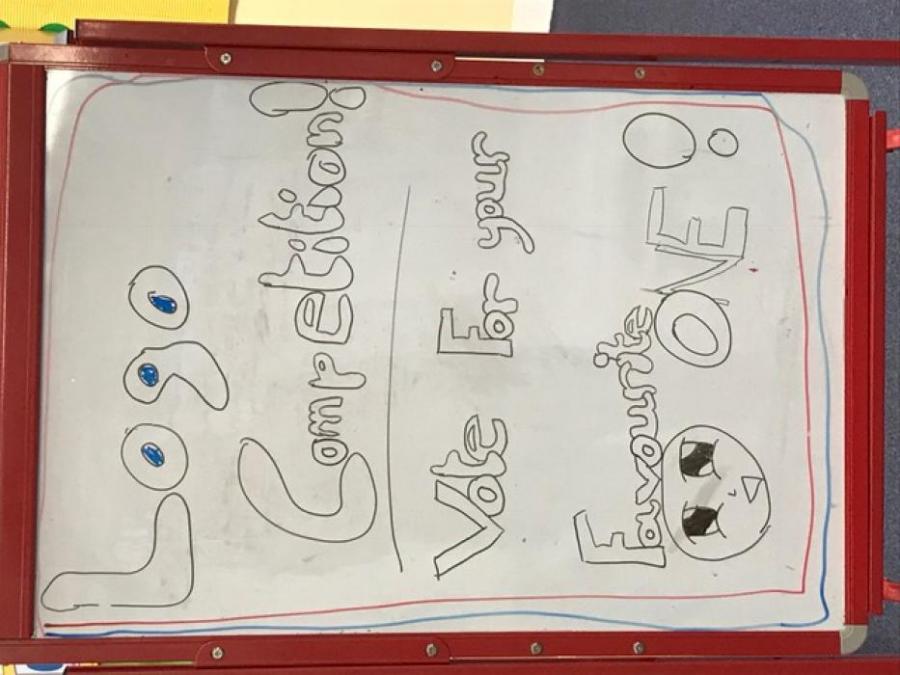 Logo
Competition!
Vote For your
Favourite
ONE!